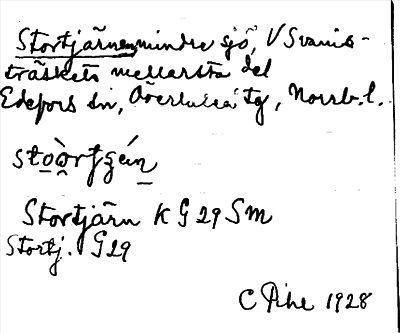 Stortjärnen, mindre sjö, V Svanis-
träskets mellersta del
Edefors sn, Överluleå tg, Norrb. l.
Stortjärn K G 29 Sm
Stortj. G29
C Pihe 1928